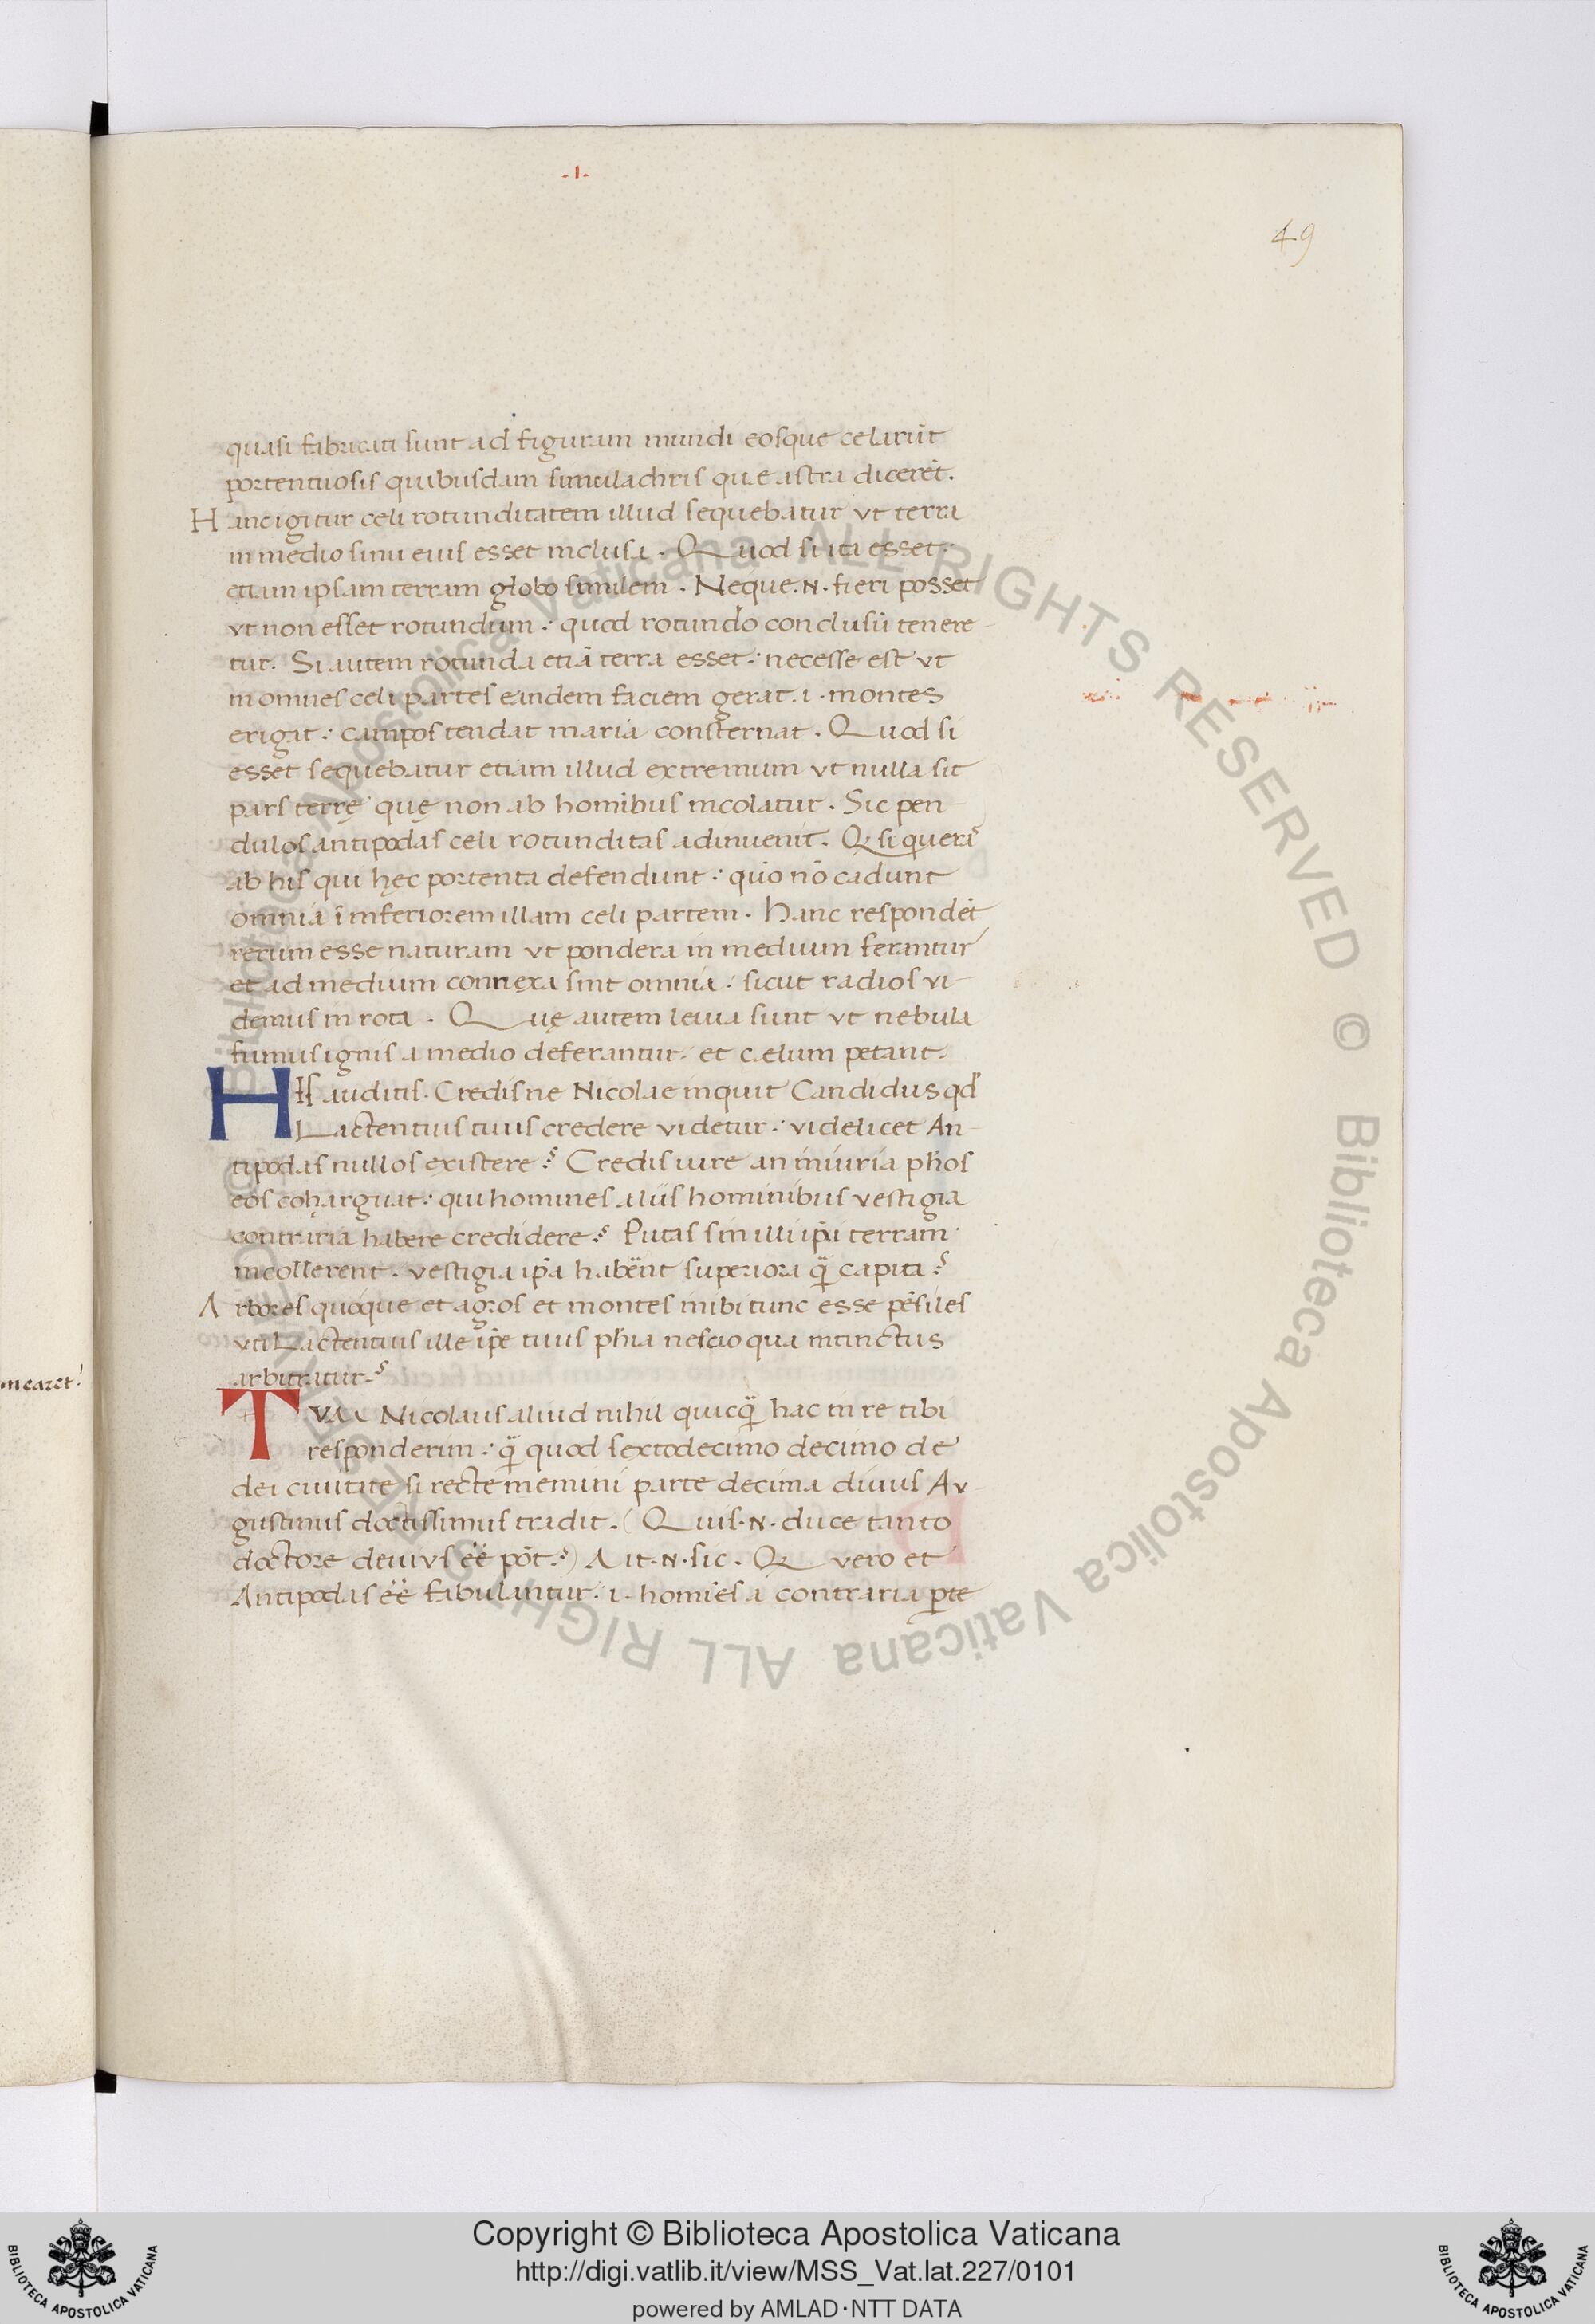 .I.
49
quasi fabricati sunt ad figuram mundi eosque celarūt
portentuosis quibusdam simulachris que astra dicerēt.
Hanc igitur celi rotunditatem illud sequebatur ut terra
in medio sinu eius esset inclusa. Quod si ita esset:
etiam ipsam terram globo similem. Neque .N. fieri posset
ut non esset rotundum: quod rotundo conclusū tenere
tur. Si autem rotunda etiā terra esset: necesse est ut
in omnes celi partes eandem faciem gerat .i. montes
erigat: campos tendat maria consternat. Quod si
esset sequebatur etiam illud extremum ut nulla sit
pars terrę quę non ab homibus incolatur. Sic pen
dulos antipodas celi rotunditas adinuenit. Q si queri
ab his qui hęc portenta defendunt: quō nō cadunt
omnia ī inferiorem illam celi partem. Hanc respondēt
rerum esse naturam ut pondera in medium ferantur
et ad medium connęxa sint omnia: sicut radios vi
demus in rota. Quę autem leuia sunt ut nebula
fumus ignis a medio deferantur. et celum petant.
His auditis. Credis ne Nicolae inquit Candidus qd
Lactentius tuus credere videtur: videlicet An
tipodas nullos existere? Credis iure an iniuria phōs
eos coharguat: qui homines aliis hominibus vestigia
contraria habere credidere? Putas sin illi ipi terram
incollerent. vestigia ipa habēnt superiora q̄ capita?
Arbores quoque et agros et montes inibi tunc esse pēsiles
uti Lactentius ille ipe tuus phia nescio qua intinctus
arbitratur?
Nicolaus aliud nihil quicq̄ hac in re tibi
responderim: q̄ quod sextodecimo decimo de
dei ciuitate si recte memini parte decima diuus Au
gustinus doctissimus tradit. (Quis .N. duce tanto
doctore deuius ēē pōt?) Ait .N. sic. Q vero et
Antipodas ēē fabulantur .i. homiēs a contraria pte
Copyright © Biblioteca Apostolica Vaticana
http://digi.vatlib.it/view/MSS_Vat.lat.227/0101
powered by AMLAD·NTT DATA
BIBLIOTECA APOSTOLICA VATICANA
BIBLIOTECA APOSTOLICA VATICANA